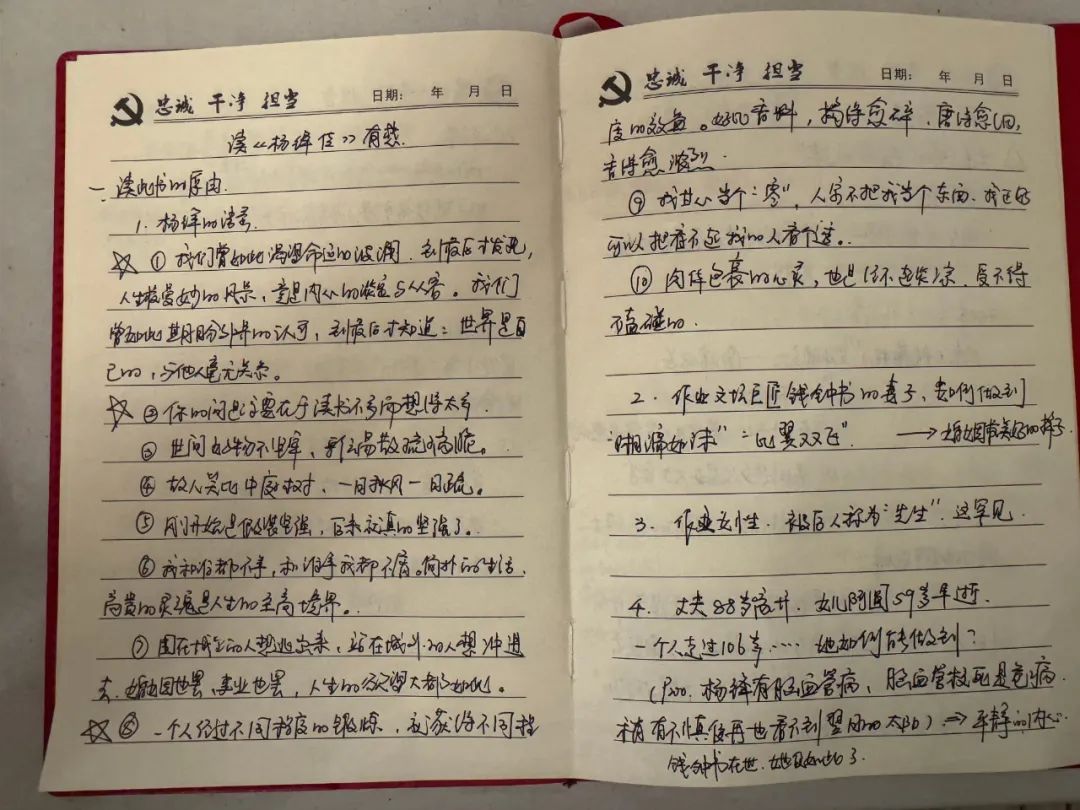 忠诚 干净 担当 日期: 年 月 日
读《杨绛传》有感.
一、读此书的原由.
1. 杨绛的语录.
☆ ① 我们曾如此渴望命运的波澜, 到最后才发现,
人生最曼妙的风景, 竟是内心的淡定与从容。我们
曾如此期盼外界的认可, 到最后才知道: 世界是自
己的, 与他人毫无关系。
☆ ② 你的问题主要在于读书不多而想得太多.
③ 世间好物不坚牢, 彩云易散琉璃脆。
④ 故人笑比中庭树, 一日秋风一日疏。
⑤ 刚开始是假装坚强, 后来就真的坚强了.
⑥ 我和谁都不争, 和谁争我都不屑。简朴的生活、
高贵的灵魂是人生的至高境界。
⑦ 围在城里的人想逃出来, 站在城外的人想冲进
去. 婚姻也罢, 事业也罢, 人生的欲望大都如此。
☆ ⑧ 一个人经过不同程度的锻炼, 就获得不同程
忠诚 干净 担当 日期: 年 月 日
度的效益。好比香料, 捣得愈碎, 磨得愈细,
香得愈浓烈.
⑨ 我甘心当个"零", 人家不把我当个东西. 我正好
可以把看不起我的人看个透。
⑩ 肉体包裹的心灵, 也是经不起炎凉, 受不得
磕碰的.
2. 作为文坛巨匠钱钟书的妻子, 如何做到
"相濡如沫" "比翼双飞" → 婚姻最美好的样子
3. 作为女性. 被后人称为"先生". 这罕见.
4. 丈夫88岁离世. 女儿阿圆59岁早逝.
一个人走过106岁…… 她如何能做到?
(P200. 杨绛有脑血管病, 脑血管 是老病
稍有不慎便再也看不到翌日的太阳) ⇒ 平静的内心
钱钟书在世. 她 如此了.